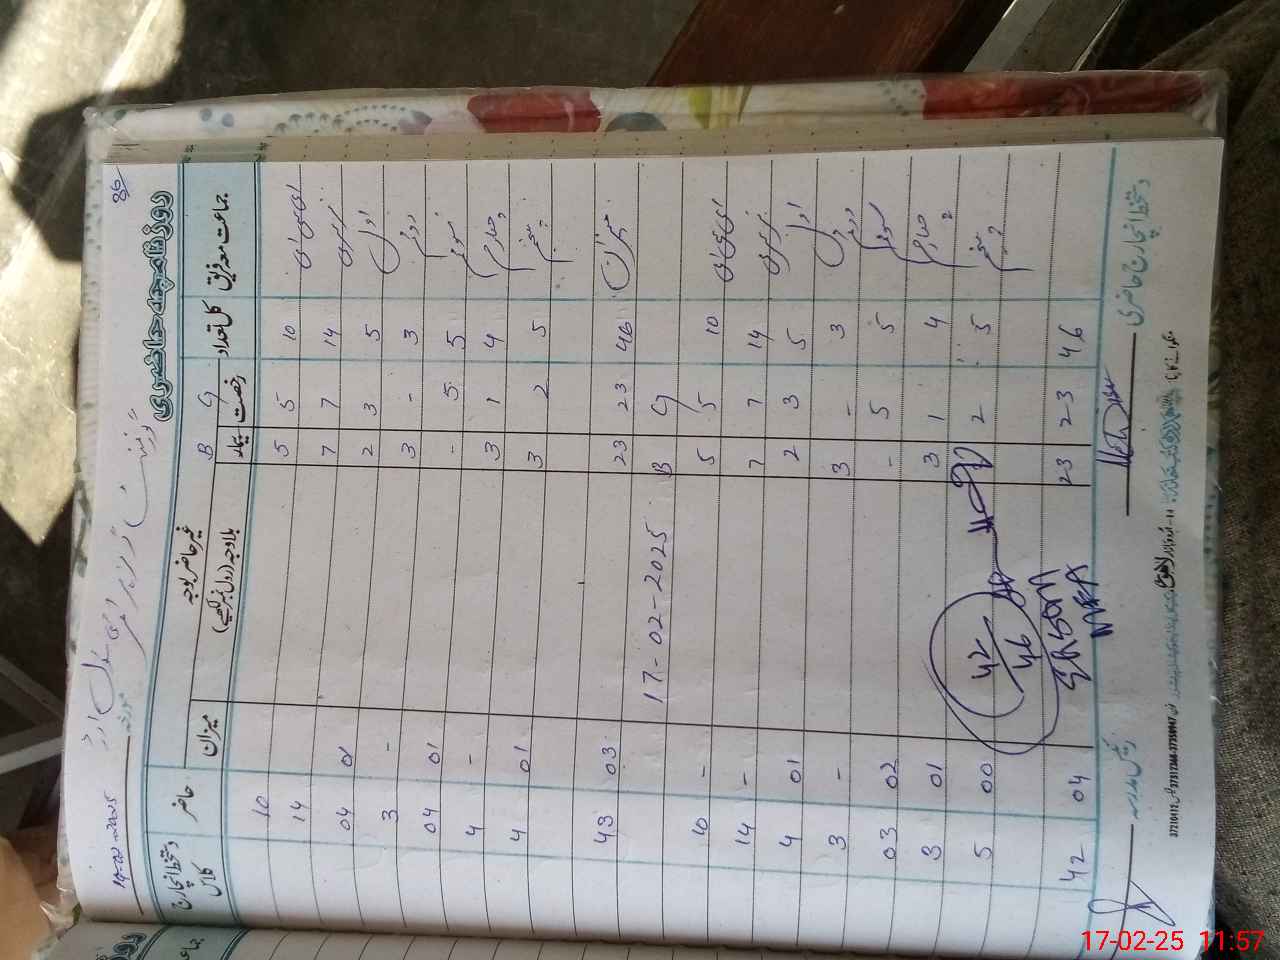 86
روزنامچہ حاضری
14-02-2025
B G
جماعت معہ فریق کل تعداد رخصت بیمار غیر حاضر بوجہ بلاوجہ (رول نمبر لکھیے) میزان حاضر دستخط انچارج کلاس
ای سی ای 10 5 5 10
نرسری 14 7 7 14
اول 5 3 2 01 04
دوئم 3 - 3 - 3
سوئم 5 5 - 01 04
چہارم 4 1 3 - 4
پنجم 5 2 3 01 4
میزان 46 23 23 03 43
17-02-2025
G B
ای سی ای 10 5 5 - 10
نرسری 14 7 7 - 14
اول 5 3 2 01 4
دوئم 3 - 3 - 3
سوئم 5 5 - 02 03
چہارم 4 1 3 01 3
پنجم 5 2 3 00 5
46 23 23 04 42
42
46
MEA
دستخط انچارج حاضری
رئیس مدرسہ
لاہور
17-02-25 11:57